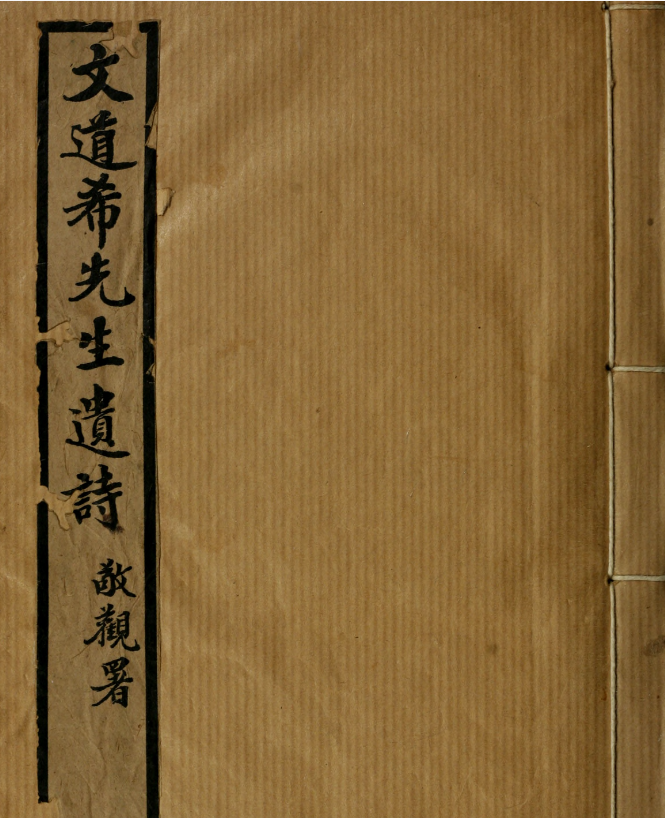 文道希先生遺詩
敢觀署